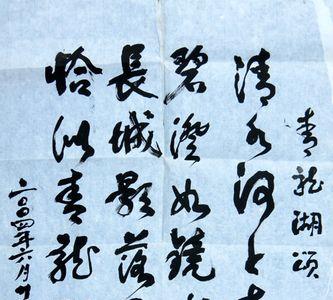 青龙湖颂
清水河上
碧澄如镜
長城影落
恰似青龙
二〇〇四年六月